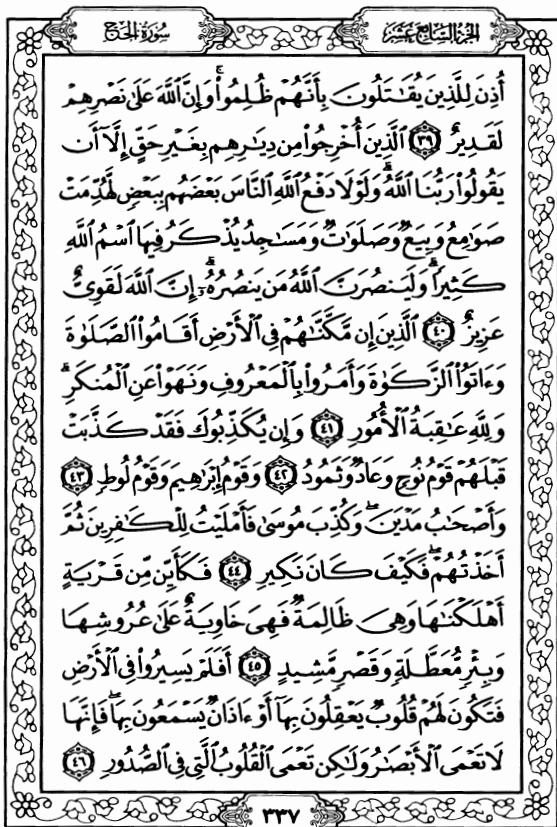 سُورَةُ الحَجّ
الجُزْءُ السَّابِعَ عَشَرَ
أُذِنَ لِلَّذِينَ يُقَٰتَلُونَ بِأَنَّهُمۡ ظُلِمُواْۚ وَإِنَّ ٱللَّهَ عَلَىٰ نَصۡرِهِمۡ
لَقَدِيرٌ ٣٩ ٱلَّذِينَ أُخۡرِجُواْ مِن دِيَٰرِهِم بِغَيۡرِ حَقٍّ إِلَّآ أَن
يَقُولُواْ رَبُّنَا ٱللَّهُۗ وَلَوۡلَا دَفۡعُ ٱللَّهِ ٱلنَّاسَ بَعۡضَهُم بِبَعۡضٖ لَّهُدِّمَتۡ
صَوَٰمِعُ وَبِيَعٞ وَصَلَوَٰتٞ وَمَسَٰجِدُ يُذۡكَرُ فِيهَا ٱسۡمُ ٱللَّهِ
كَثِيرٗاۗ وَلَيَنصُرَنَّ ٱللَّهُ مَن يَنصُرُهُۥٓۚ إِنَّ ٱللَّهَ لَقَوِيٌّ
عَزِيزٌ ٤٠ ٱلَّذِينَ إِن مَّكَّنَّٰهُمۡ فِي ٱلۡأَرۡضِ أَقَامُواْ ٱلصَّلَوٰةَ
وَءَاتَوُاْ ٱلزَّكَوٰةَ وَأَمَرُواْ بِٱلۡمَعۡرُوفِ وَنَهَوۡاْ عَنِ ٱلۡمُنكَرِۗ
وَلِلَّهِ عَٰقِبَةُ ٱلۡأُمُورِ ٤١ وَإِن يُكَذِّبُوكَ فَقَدۡ كَذَّبَتۡ
قَبۡلَهُمۡ قَوۡمُ نُوحٖ وَعَادٞ وَثَمُودُ ٤٢ وَقَوۡمُ إِبۡرَٰهِيمَ وَقَوۡمُ لُوطٖ ٤٣
وَأَصۡحَٰبُ مَدۡيَنَۖ وَكُذِّبَ مُوسَىٰ فَأَمۡلَيۡتُ لِلۡكَٰفِرِينَ ثُمَّ
أَخَذۡتُهُمۡۖ فَكَيۡفَ كَانَ نَكِيرِ ٤٤ فَكَأَيِّن مِّن قَرۡيَةٍ
أَهۡلَكۡنَٰهَا وَهِيَ ظَالِمَةٞ فَهِيَ خَاوِيَةٌ عَلَىٰ عُرُوشِهَا
وَبِئۡرٖ مُّعَطَّلَةٖ وَقَصۡرٖ مَّشِيدٍ ٤٥ أَفَلَمۡ يَسِيرُواْ فِي ٱلۡأَرۡضِ
فَتَكُونَ لَهُمۡ قُلُوبٞ يَعۡقِلُونَ بِهَآ أَوۡ ءَاذَانٞ يَسۡمَعُونَ بِهَاۖ فَإِنَّهَا
لَا تَعۡمَى ٱلۡأَبۡصَٰرُ وَلَٰكِن تَعۡمَى ٱلۡقُلُوبُ ٱلَّتِي فِي ٱلصُّدُورِ ٤٦
٣٣٧